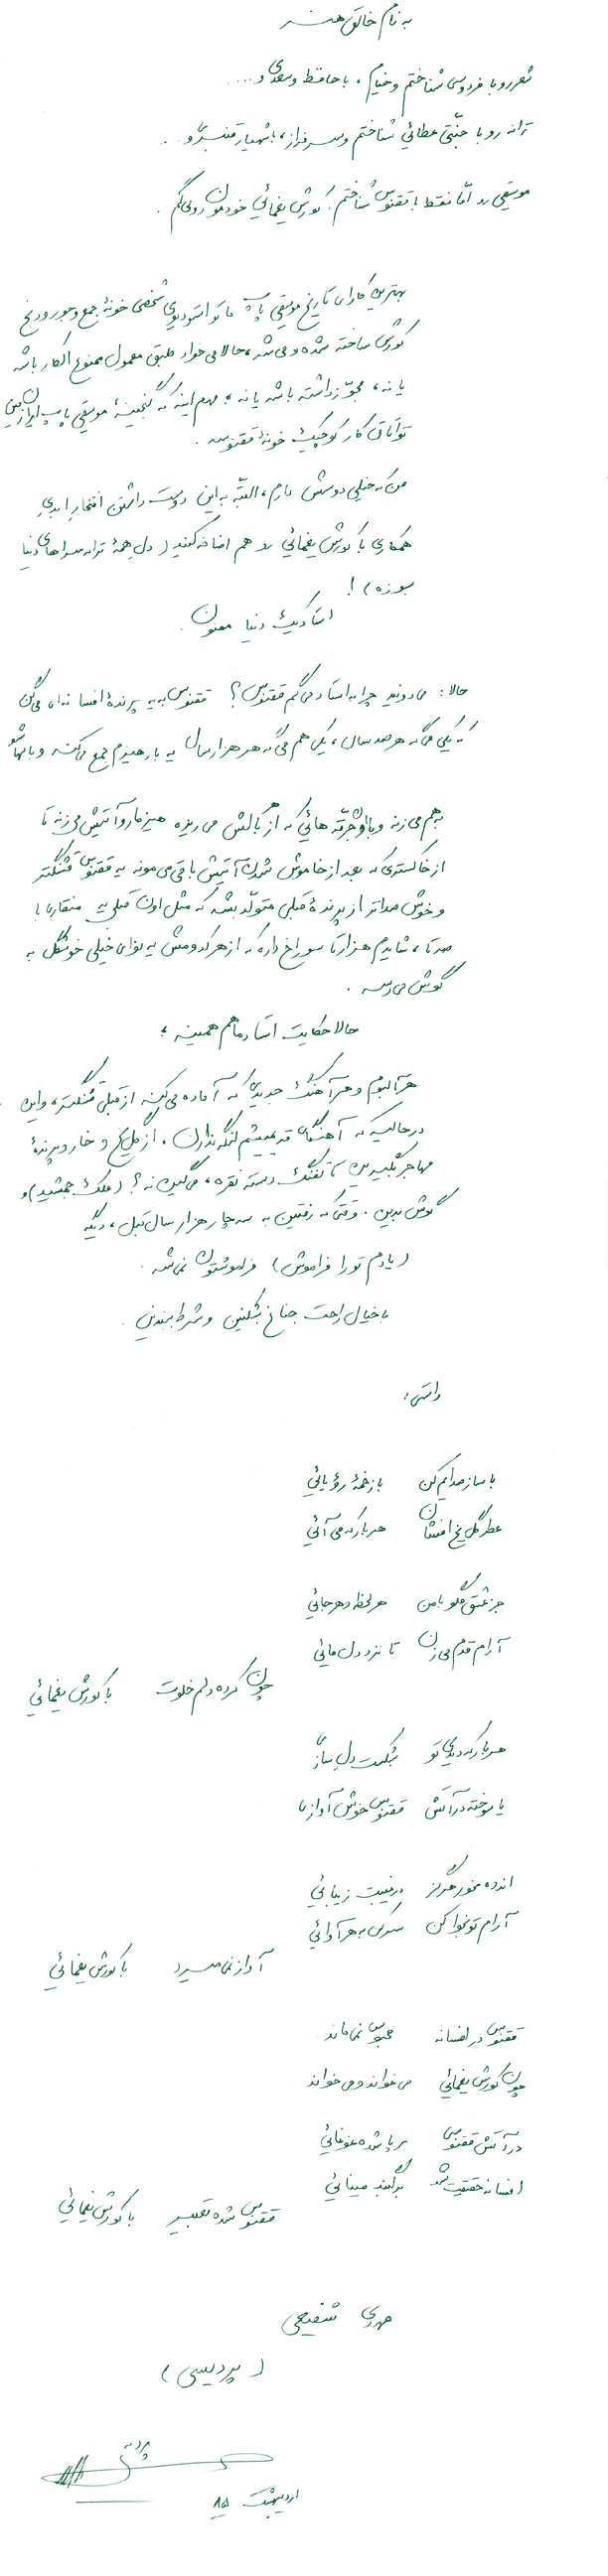 به نام خالق هنر
شعر رو با فردوسی شناختم و خیام، با حافظ و سعدی و ....
ترانه رو با جنّتی عطائی شناختم و سرفراز، با شهیار قنبری و ..
موسیقی رو امّا فقط با ققنوس شناختم. کورش یغمائی خودمون رو می گم.
بهترین کارای تاریخ موسیقی پاپ ما تو استودیوی شخصی خونهٔ جمع و جور و دنج
کورش ساخته شده و می شه، حالا می خواد طبق معمول ممنوع الکار باشه
یا نه، مجوّز داشته باشه یا نه، مهم اینه که گنجینهٔ موسیقی پاپ ایران زمین
تو اتاق کار کوچیک خونهٔ ققنوسه.
من که خیلی دوسش دارم، البتّه به این دوست داشتن افتخار ابدیِ
همکاری با کورش یغمائی رو هم اضافه کنید (دل همهٔ ترانه سراهای دنیا
بسوزه)!
استاد یک دنیا ممنون.
حالا: می دونید چرا به استاد می گم ققنوس؟ ققنوس به یه پرندهٔ افسانه ای می گن
که یکی می گه هر صد سال، یکی هم می گه هر هزار سال یه بار هیزم جمع می کنه و بالهاشو
به هم می زنه و با جرقّه هائی که از بالش می ریزه هیزما رو آتیش می زنه تا
از خاکستری که بعد از خاموش شدن آتیش باقی می مونه یه ققنوس قشنگتر
و خوش صداتر از پرندهٔ قبلی متولّد بشه که مثل اون قبلی یه منقاری با
صد تا، شایدم هزار تا سوراخ داره که از هر کدومش یه نوای خیلی خوشگل به
گوش می رسه.
حالا حکایت استاد ما هم همینه؛
هر آلبوم و هر آهنگ جدیدی که آماده می کنه از قبلی قشنگتره، و این
در حالیه که آهنگای قدیمیشم لنگه ندارن. از گل یخ و خار و پرندهٔ
مهاجر بگیرین تا تفنگ دسته نقره، می گین نه؟ (ملک جمشید) و
گوش بدین. وقتی که رفتین به سه چار هزار سال قبل، دیگه
(یادم تو را فراموش) فراموشتون نمی شه.
با خیال راحت جناغ بشکنین و شرط ببندین.
راستی:
با ساز صدایم کن با زخمهٔ رؤیائی
عطر گل یخ افشان هر بار که می آئی
جز عشق مگو با من هر لحظه و هر جائی
آرام قدم می زن تا نزد دل مائی
چون کرده دلم خلوت با کورش یغمائی
هر بار که دیدی تو بشکست دل سازی
یا سوخته در آتش ققنوس خوش آوازی
انده مخور هرگز در غیبت زیبائی
آرام تو نجوا کن سکری به هر آوائی
آواز نمی میرد با کورش یغمائی
ققنوس در افسانه محبوس نمی ماند
چون کورش یغمائی می خواند و می خواند
در آتش ققنوسی بر پا شده غوغائی
افسانه حقیقت شد بر گنبد مینائی
ققنوس شده تعبیر با کورش یغمائی
مهدی شفیعی
(پردیسی)
اردیبهشت ۸۵